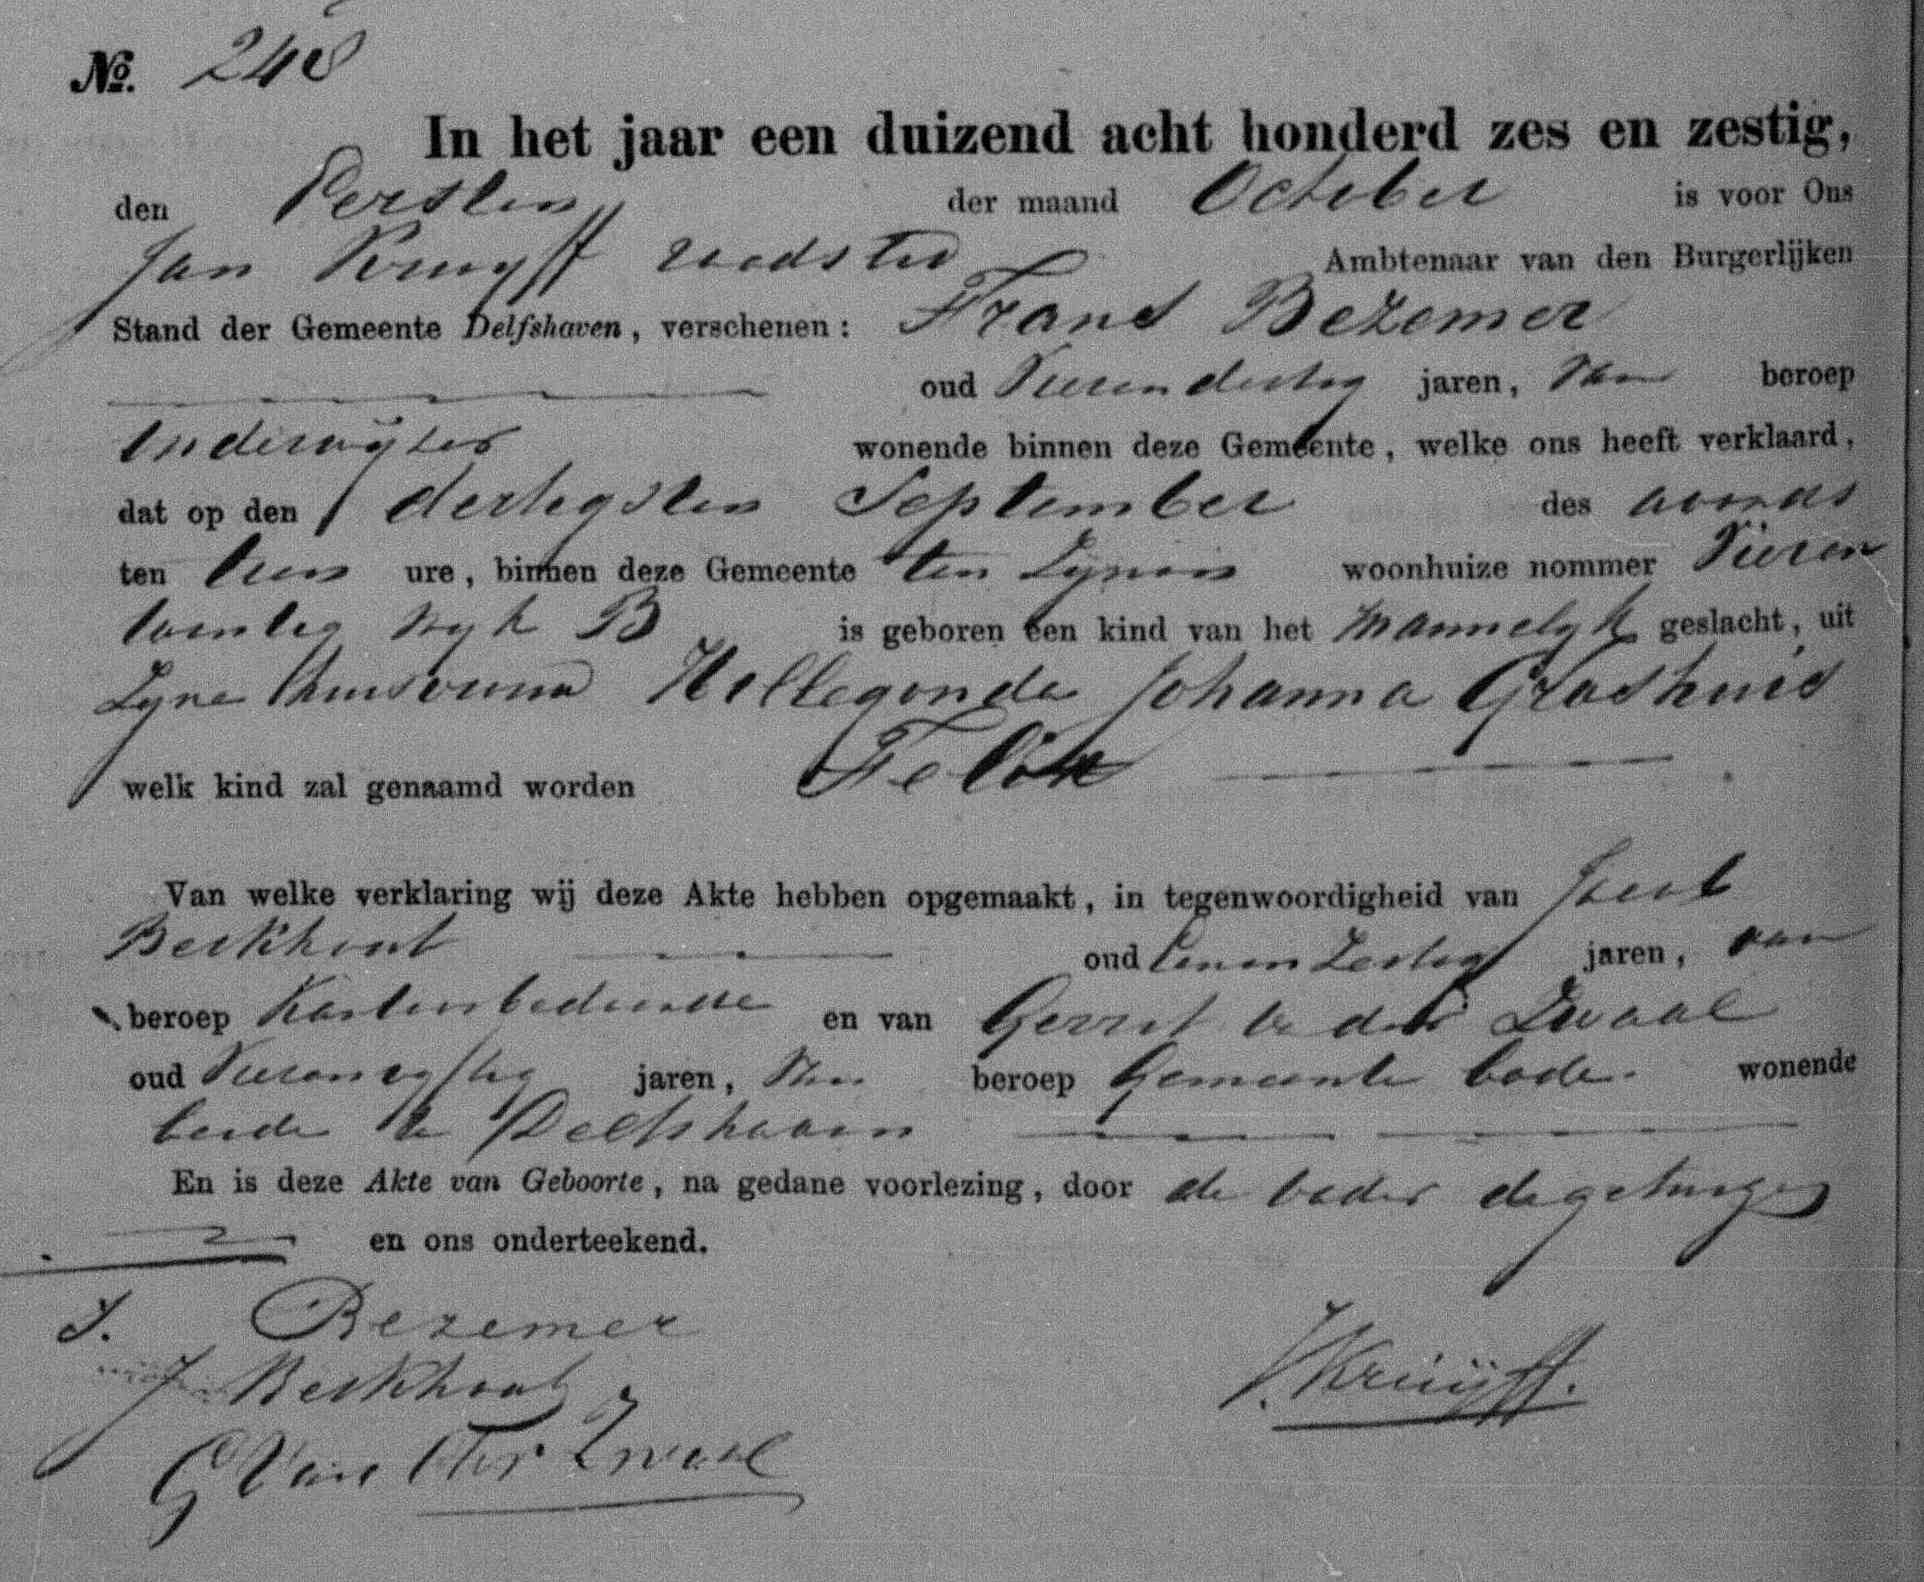 No. 248
In het jaar een duizend acht honderd zes en zestig,
den Eersten der maand October is voor Ons
Jan Kruyff Ambtenaar van den Burgerlijken
Stand der Gemeente Delfshaven, verschenen: Frans Bezemer
oud Vierendertig jaren, van beroep
Onderwijzer wonende binnen deze Gemeente, welke ons heeft verklaard,
dat op den dertigsten September des avonds
ten ure, binnen deze Gemeente ten Zynen woonhuize nommer Vieren
twintig wyk B is geboren een kind van het Mannelyk geslacht, uit
Zyne Huisvrouw Hillegonda Johanna Grashuis
welk kind zal genaamd worden Felix
Van welke verklaring wij deze Akte hebben opgemaakt, in tegenwoordigheid van
Berkhout oud eenen Zestig jaren, van
beroep Kantoorbediende en van Gerrit van der Zwaal
oud Vierenvyftig jaren, van beroep Gemeente bode wonende
beide te Delfshaven
En is deze Akte van Geboorte, na gedane voorlezing, door de vader de getuigen
en ons onderteekend.
F. Bezemer
J Berkhout
J. Kruijff.
G Van der Zwaal